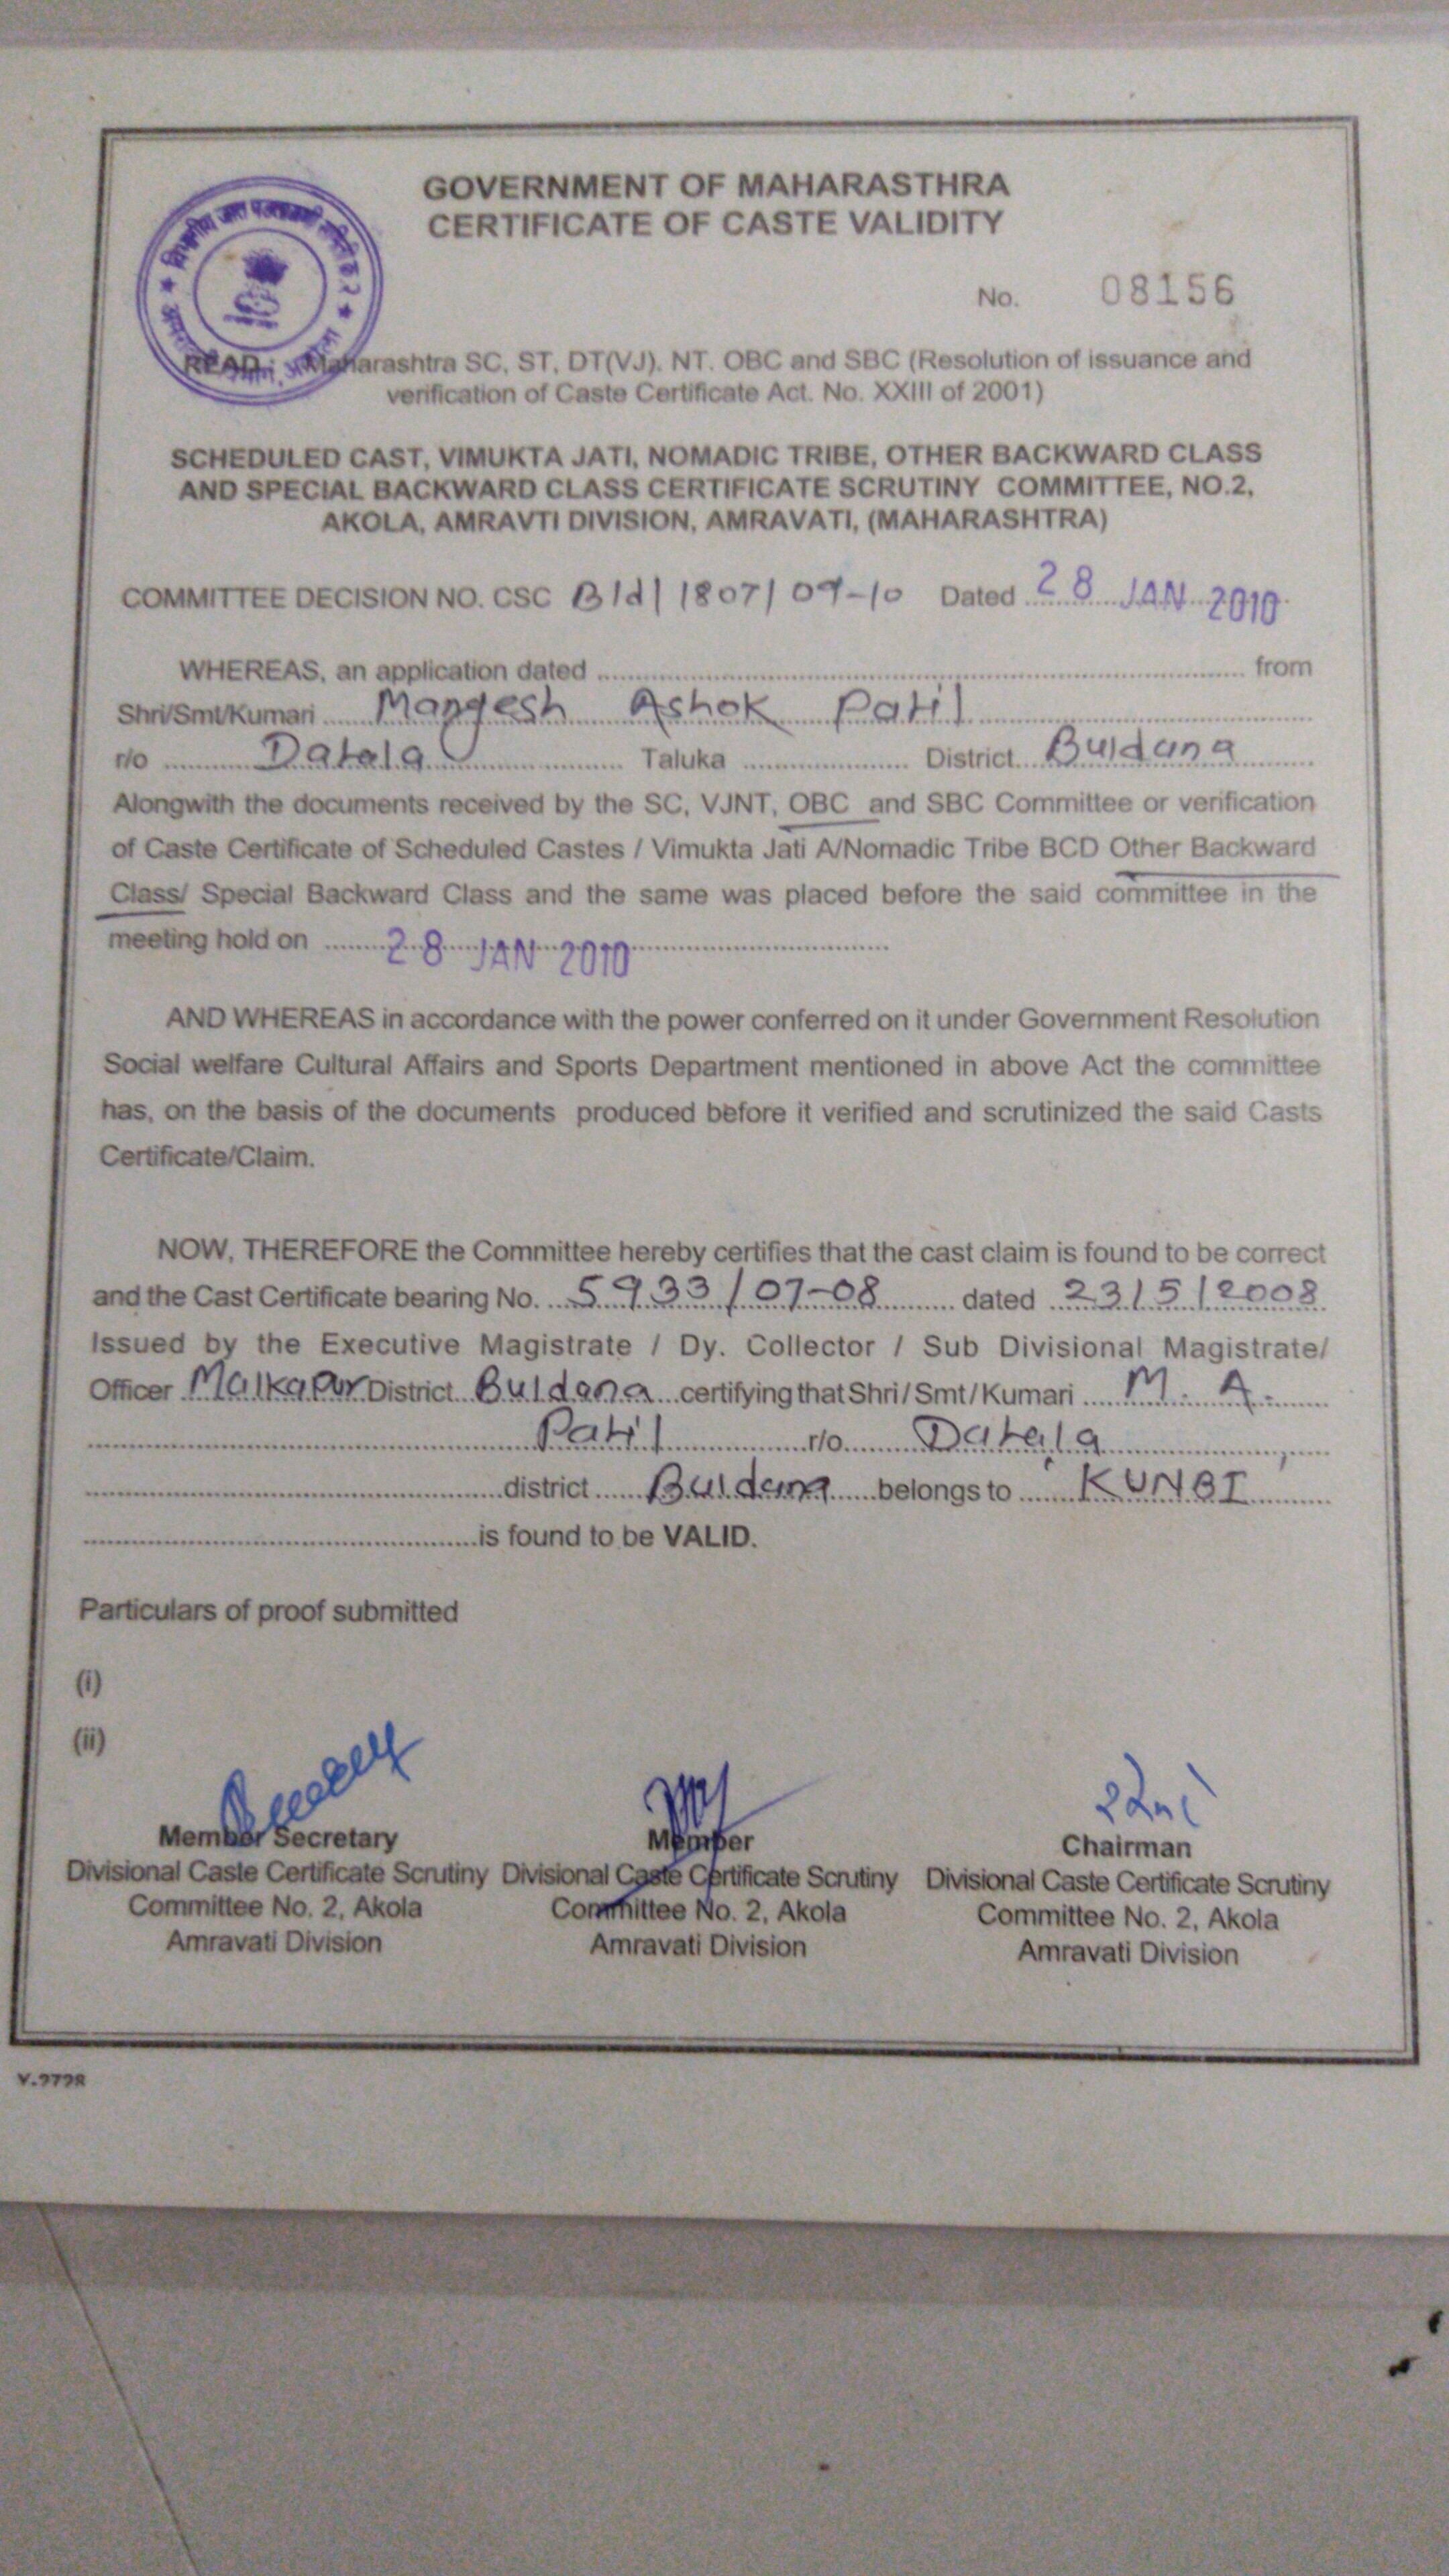 GOVERNMENT OF MAHARASTHRA
CERTIFICATE OF CASTE VALIDITY
No. 08156
READ : Maharashtra SC, ST, DT(VJ), NT. OBC and SBC (Resolution of issuance and
verification of Caste Certificate Act. No. XXIII of 2001)
SCHEDULED CAST, VIMUKTA JATI, NOMADIC TRIBE, OTHER BACKWARD CLASS
AND SPECIAL BACKWARD CLASS CERTIFICATE SCRUTINY COMMITTEE, NO.2,
AKOLA, AMRAVTI DIVISION, AMRAVATI, (MAHARASHTRA)
COMMITTEE DECISION NO. CSC Bld/1807/09-10 Dated 28 JAN 2010
WHEREAS, an application dated from
Shri/Smt/Kumari Mangesh Ashok Patil
r/o Datala Taluka District Buldana
Alongwith the documents received by the SC, VJNT, OBC and SBC Committee or verification
of Caste Certificate of Scheduled Castes / Vimukta Jati A/Nomadic Tribe BCD Other Backward
Class/ Special Backward Class and the same was placed before the said committee in the
meeting hold on 28 JAN 2010
AND WHEREAS in accordance with the power conferred on it under Government Resolution
Social welfare Cultural Affairs and Sports Department mentioned in above Act the committee
has, on the basis of the documents produced before it verified and scrutinized the said Casts
Certificate/Claim.
NOW, THEREFORE the Committee hereby certifies that the cast claim is found to be correct
and the Cast Certificate bearing No. 5933/07-08 dated 23/5/2008
Issued by the Executive Magistrate / Dy. Collector / Sub Divisional Magistrate/
Officer Malkapur District Buldana certifying that Shri/Smt/Kumari M. A.
Patil r/o Datala
district Buldana belongs to KUNBI
is found to be VALID.
Particulars of proof submitted
(i)
(ii)
Member Secretary Member Chairman
Divisional Caste Certificate Scrutiny Divisional Caste Certificate Scrutiny Divisional Caste Certificate Scrutiny
Committee No. 2, Akola Committee No. 2, Akola Committee No. 2, Akola
Amravati Division Amravati Division Amravati Division